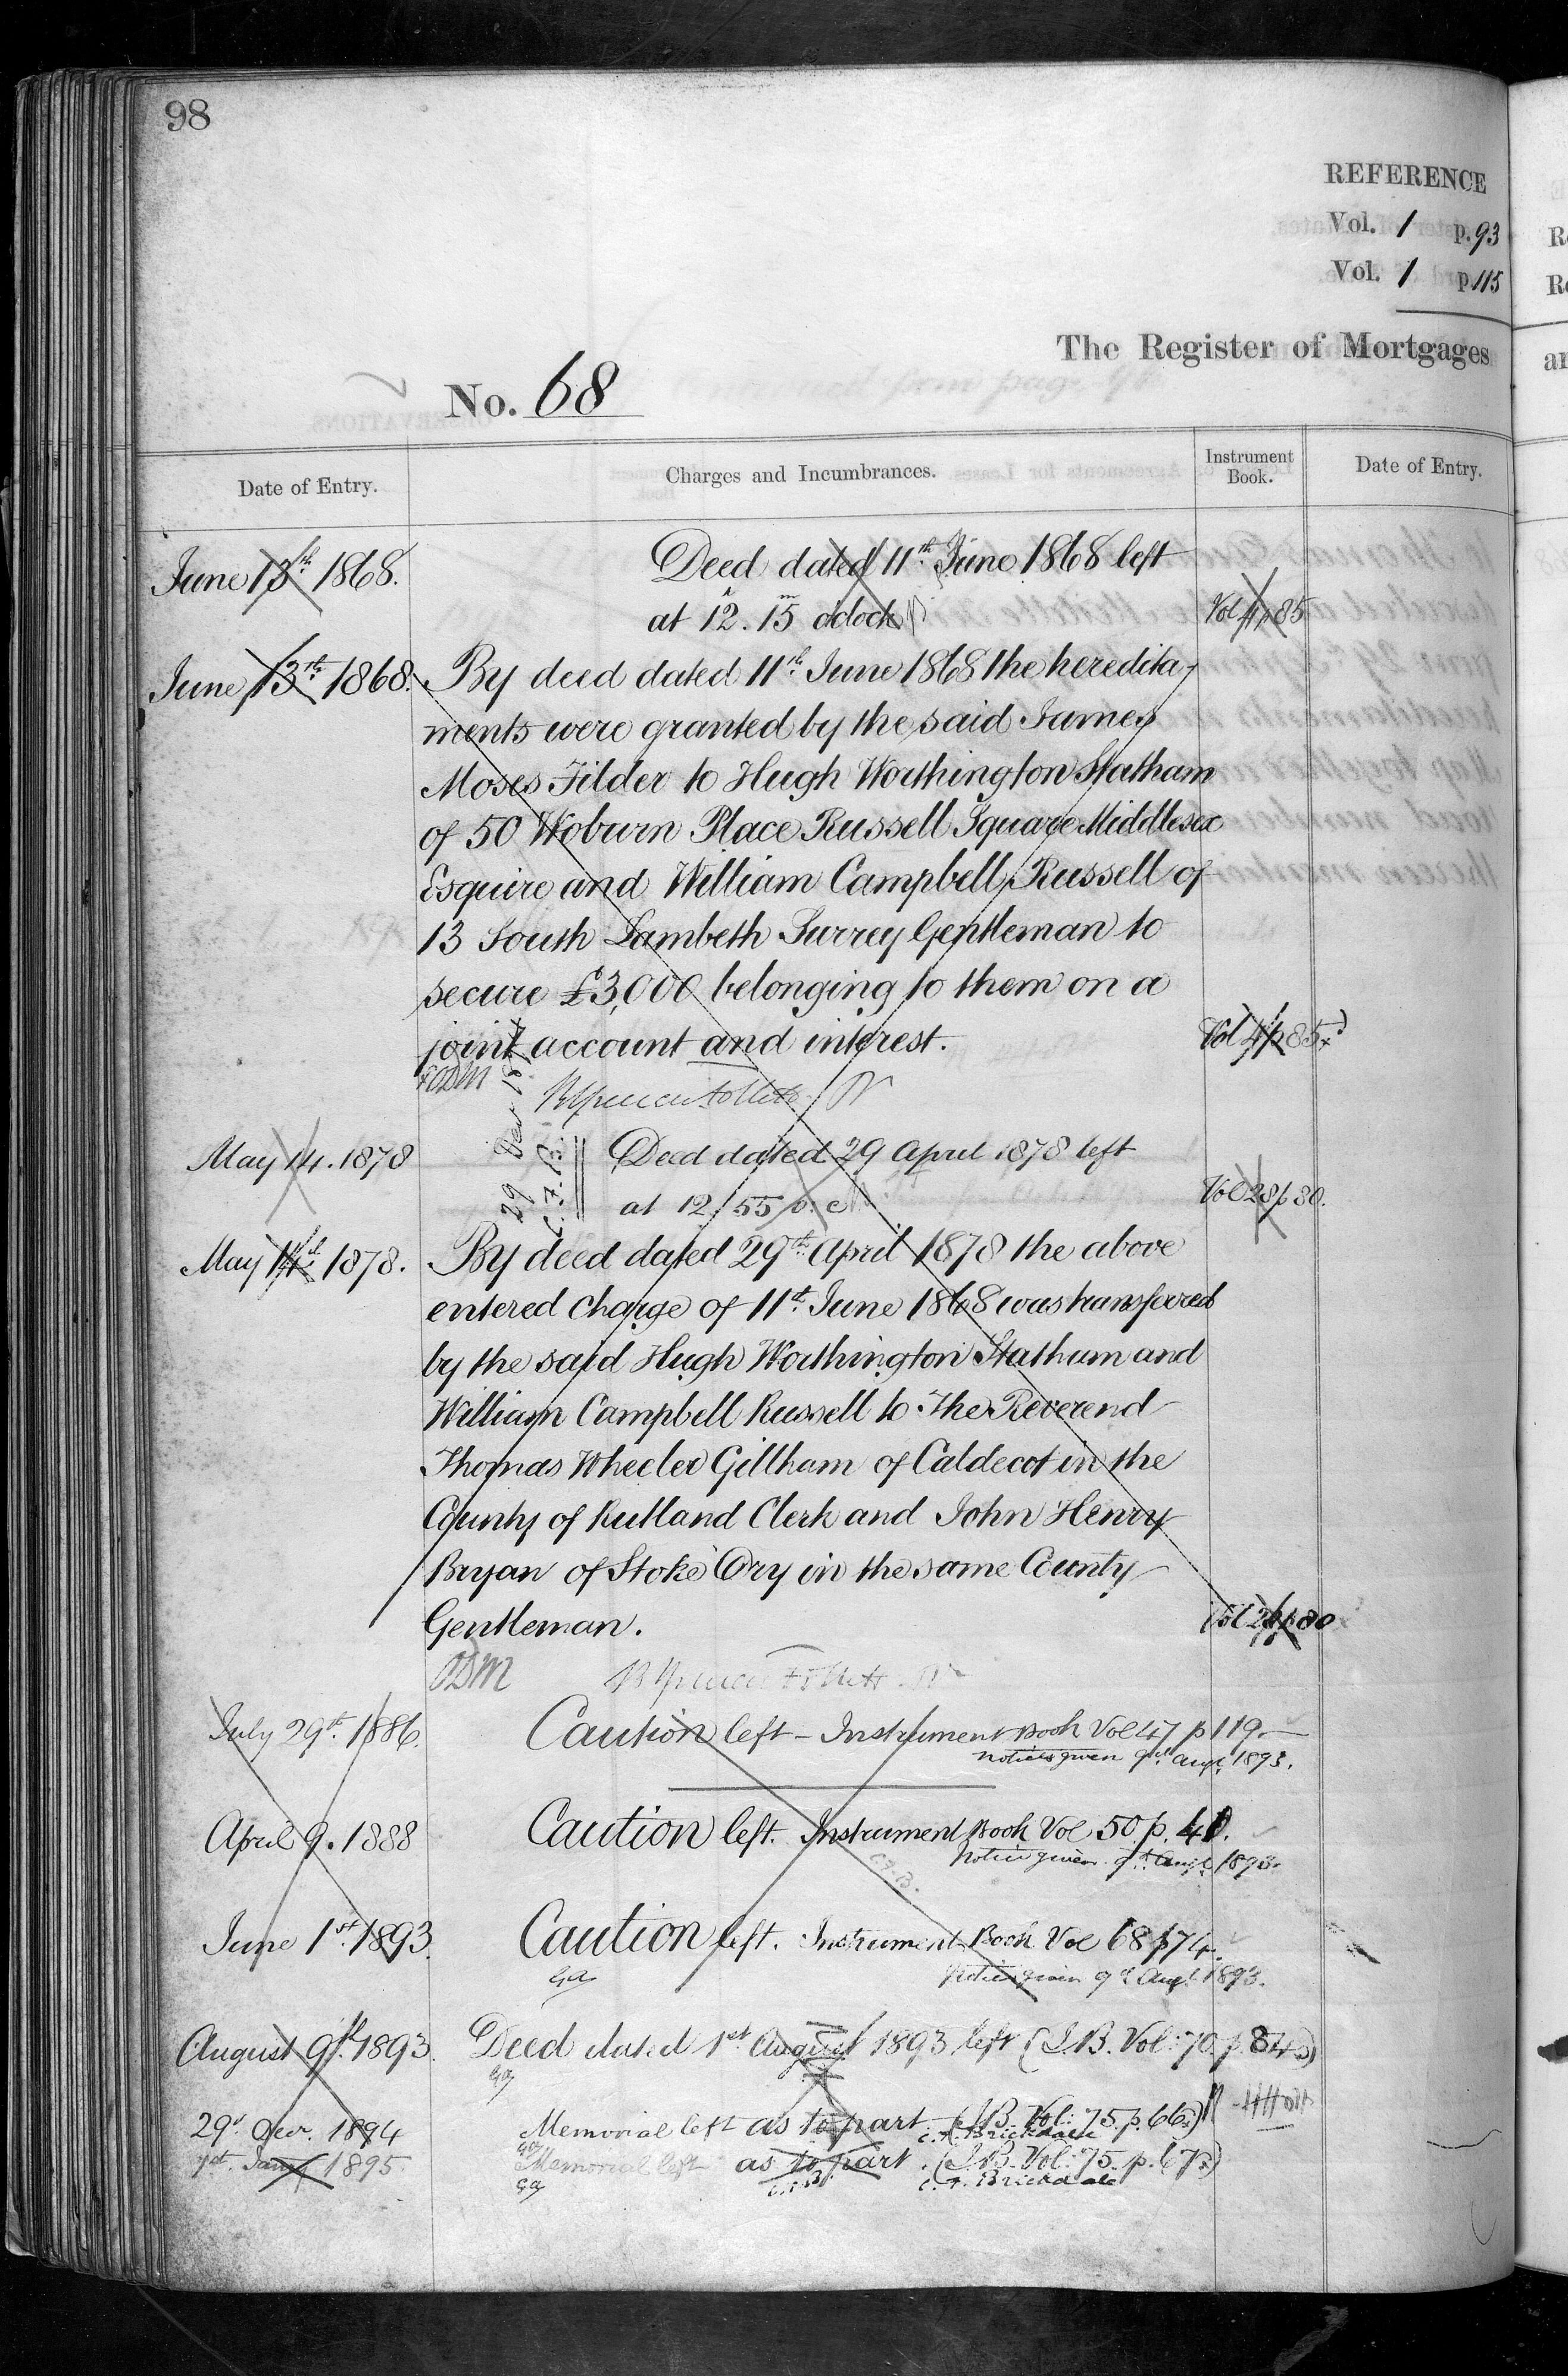 98
REFERENCE
Vol. 1 p. 93
Vol. 1 p. 115
The Register of Mortgages
No. 68
Date of Entry.
Charges and Incumbrances.
Instrument Book.
Date of Entry.
June 13th 1868.
Deed dated 11th June 1868 left
at 12h. 15m o'clock
Vol 4 p 85
June 13th 1868.
By deed dated 11th June 1868 the heredita-
ments were granted by the said James
Moses Filder to Hugh Worthington Statham
of 50 Woburn Place Russell Square Middlesex
Esquire and William Campbell Russell of
13 South Lambeth Surrey Gentleman to
secure £3,000 belonging to them on a
joint account and interest.
Vol 4 p 85
May 14. 1878
Deed dated 29 April 1878 left
at 12/55 o. c.
Vol 28 p 80.
29
C. F. B.
May 14th 1878.
By deed dated 29th April 1878 the above
entered charge of 11th June 1868 was transferred
by the said Hugh Worthington Statham and
William Campbell Russell to The Reverend
Thomas Wheeler Gillham of Caldecot in the
County of Rutland Clerk and John Henry
Bryan of Stoke Dry in the same County
Gentleman.
Vol 28 p 80
ODM
July 29th 1886.
Caution left – Instrument Book Vol 47 p 119.
Notices given 9th Augt. 1893.
April 9. 1888
Caution left. Instrument Book Vol 50. p. 40.
Notice given 9th Augt. 1893.
C.F.B.
June 1st 1893.
Caution left. Instrument Book Vol 68 p 74.
Ga
Notice given 9th Augt. 1893.
August 9th 1893.
Deed dated 1st August 1893 left (I.B. Vol: 70. p. 84.)
Ga
29th Decr. 1894
Memorial left as to part. (I.B. Vol: 75. p. 66.)
Ga
C. F. Brickdale
1st. Jany. 1895.
Memorial left as to part. (I.B. Vol: 75. p. 67.)
Ga
C.F.B.
C. F. Brickdale